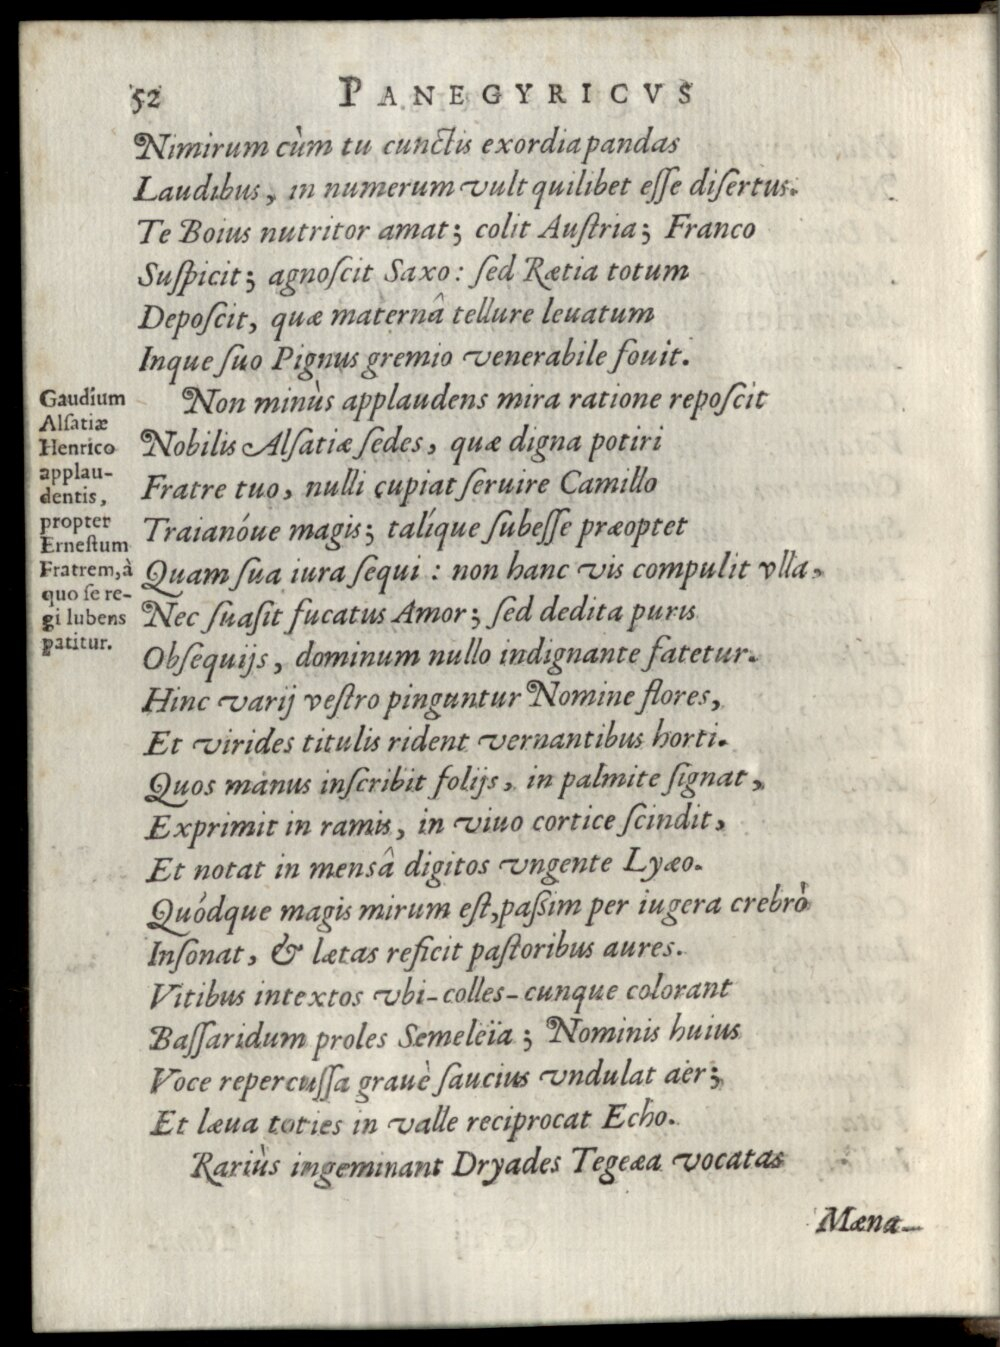 52 PANEGYRICVS
Nimirum cùm tu cunctis exordia pandas
Laudibus, in numerum vult quilibet eſſe diſertus.
Te Boius nutritor amat; colit Auſtria; Franco
Suſpicit; agnoſcit Saxo: ſed Rætia totum
Depoſcit, quæ maternâ tellure leuatum
Inque ſuo Pignus gremio venerabile fouit.
Non minùs applaudens mira ratione repoſcit
Nobilis Alſatiæ ſedes, quæ digna potiri
Fratre tuo, nulli cupiat ſeruire Camillo
Traianóue magis; talíque ſubeſſe præoptet
Quam ſua iura ſequi: non hanc vis compulit vlla,
Nec ſuaſit fucatus Amor; ſed dedita puris
Obſequijs, dominum nullo indignante fatetur.
Hinc varij veſtro pinguntur Nomine flores,
Et virides titulis rident vernantibus horti.
Quos manus inſcribit folijs, in palmite ſignat,
Exprimit in ramis, in viuo cortice ſcindit,
Et notat in mensâ digitos vngente Lyæo.
Quódque magis mirum eſt, paſsim per iugera crebrò
Inſonat, & lætas reficit paſtoribus aures.
Vitibus intextos vbi-colles-cunque colorant
Baſſaridum proles Semeleïa; Nominis huius
Voce repercuſſa grauè ſaucius vndulat aër;
Et læua toties in valle reciprocat Echo.
Rariùs ingeminant Dryades Tegeæa vocatas
Mæna-
Gaudium
Alſatiæ
Henrico
applau-
dentis,
propter
Erneſtum
Fratrem, à
quo ſe re-
gi lubens
patitur.